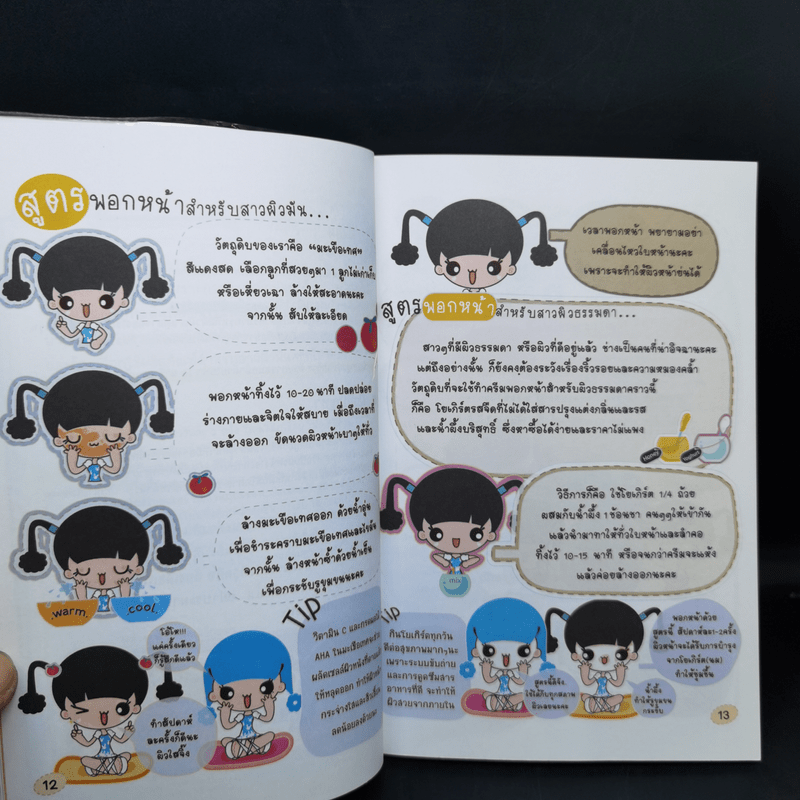 สูตรพอกหน้าสำหรับสาวผิวมัน...
วัตถุดิบของเราคือ “มะเขือเทศ”
สีแดงสด เลือกลูกที่สวยๆมา 1 ลูกไม่เน่าเก็บ
หรือเหี่ยวเฉา ล้างให้สะอาดนะคะ
จากนั้น สับให้ละเอียด
พอกหน้าทิ้งไว้ 10-20 นาที ปลดปล่อย
ร่างกายและจิตใจให้สบาย เมื่อถึงเวลาที่
จะล้างออก ขัดนวดผิวหน้าเบาๆให้ทั่ว
ล้างมะเขือเทศออก ด้วยน้ำอุ่น
เพื่อชำระคราบมะเขือเทศและ
จากนั้น ล้างหน้าซ้ำด้วยน้ำเย็น
เพื่อกระชับรูขุมขนนะคะ
warm.
cool.
Tip
วิตามิน C และกรด
AHA ในมะเขือเทศ
ผลัดเซลล์ผิวหนัง
ให้หลุดออก ทำให้ผิว
กระจ่างใสและ
ลดน้อยลงด้วย
โอ้โห!!!
แค่ครั้งเดียว
ก็รู้สึกดีแล้ว
ทำสัปดาห์
ละครั้งก็ดีนะ
ผิวใสจึ๋ง
12
เวลาพอกหน้า พยายามอย่า
เคลื่อนไหวใบหน้านะคะ
เพราะจะทำให้ผิวหน้าย่นได้
สูตรพอกหน้าสำหรับสาวผิวธรรมดา...
สาวๆที่มีผิวธรรมดา หรือผิวที่ดีอยู่แล้ว ช่างเป็นคนที่น่าอิจฉานะคะ
แต่ถึงอย่างนั้น ก็ยังคงต้องระวังเรื่องริ้วรอยและความหมองคล้ำ
วัตถุดิบที่จะใช้ทำครีมพอกหน้าสำหรับผิวธรรมดาคราวนี้
ก็คือ โยเกิร์ตรสจืดที่ไม่ได้ใส่สารปรุงแต่งกลิ่นและรส
และน้ำผึ้งบริสุทธิ์ ซึ่งหาซื้อได้ง่ายและราคาไม่แพง
Honey
Yoghurt
วิธีการก็คือ ใช้โยเกิร์ต 1/4 ถ้วย
ผสมกับน้ำผึ้ง 1 ช้อนชา คนๆๆๆให้เข้ากัน
แล้วนำมาทาให้ทั่วใบหน้าและลำคอ
ทิ้งไว้ 10-15 นาที หรือจนกว่าครีมจะแห้ง
แล้วค่อยล้างออกนะคะ
mix
Tip
กินโยเกิร์ตทุกวัน
ดีต่อสุขภาพมากๆนะ
เพราะระบบขับถ่าย
และการดูดซึมสาร
อาหารที่ดี จะทำให้
ผิวสวยจากภายใน
สูตรนี้ดีจัง
ใช้ได้กับทุกสภาพ
ผิวเลยนะคะ
พอกหน้าด้วย
สูตรนี้ สัปดาห์ละ1-2ครั้ง
ผิวหน้าจะได้รับการบำรุง
จากโยเกิร์ต(นม)
ทำให้ชุ่มชื้น
น้ำผึ้ง
ทำให้รูขุมขน
กระชับ
13